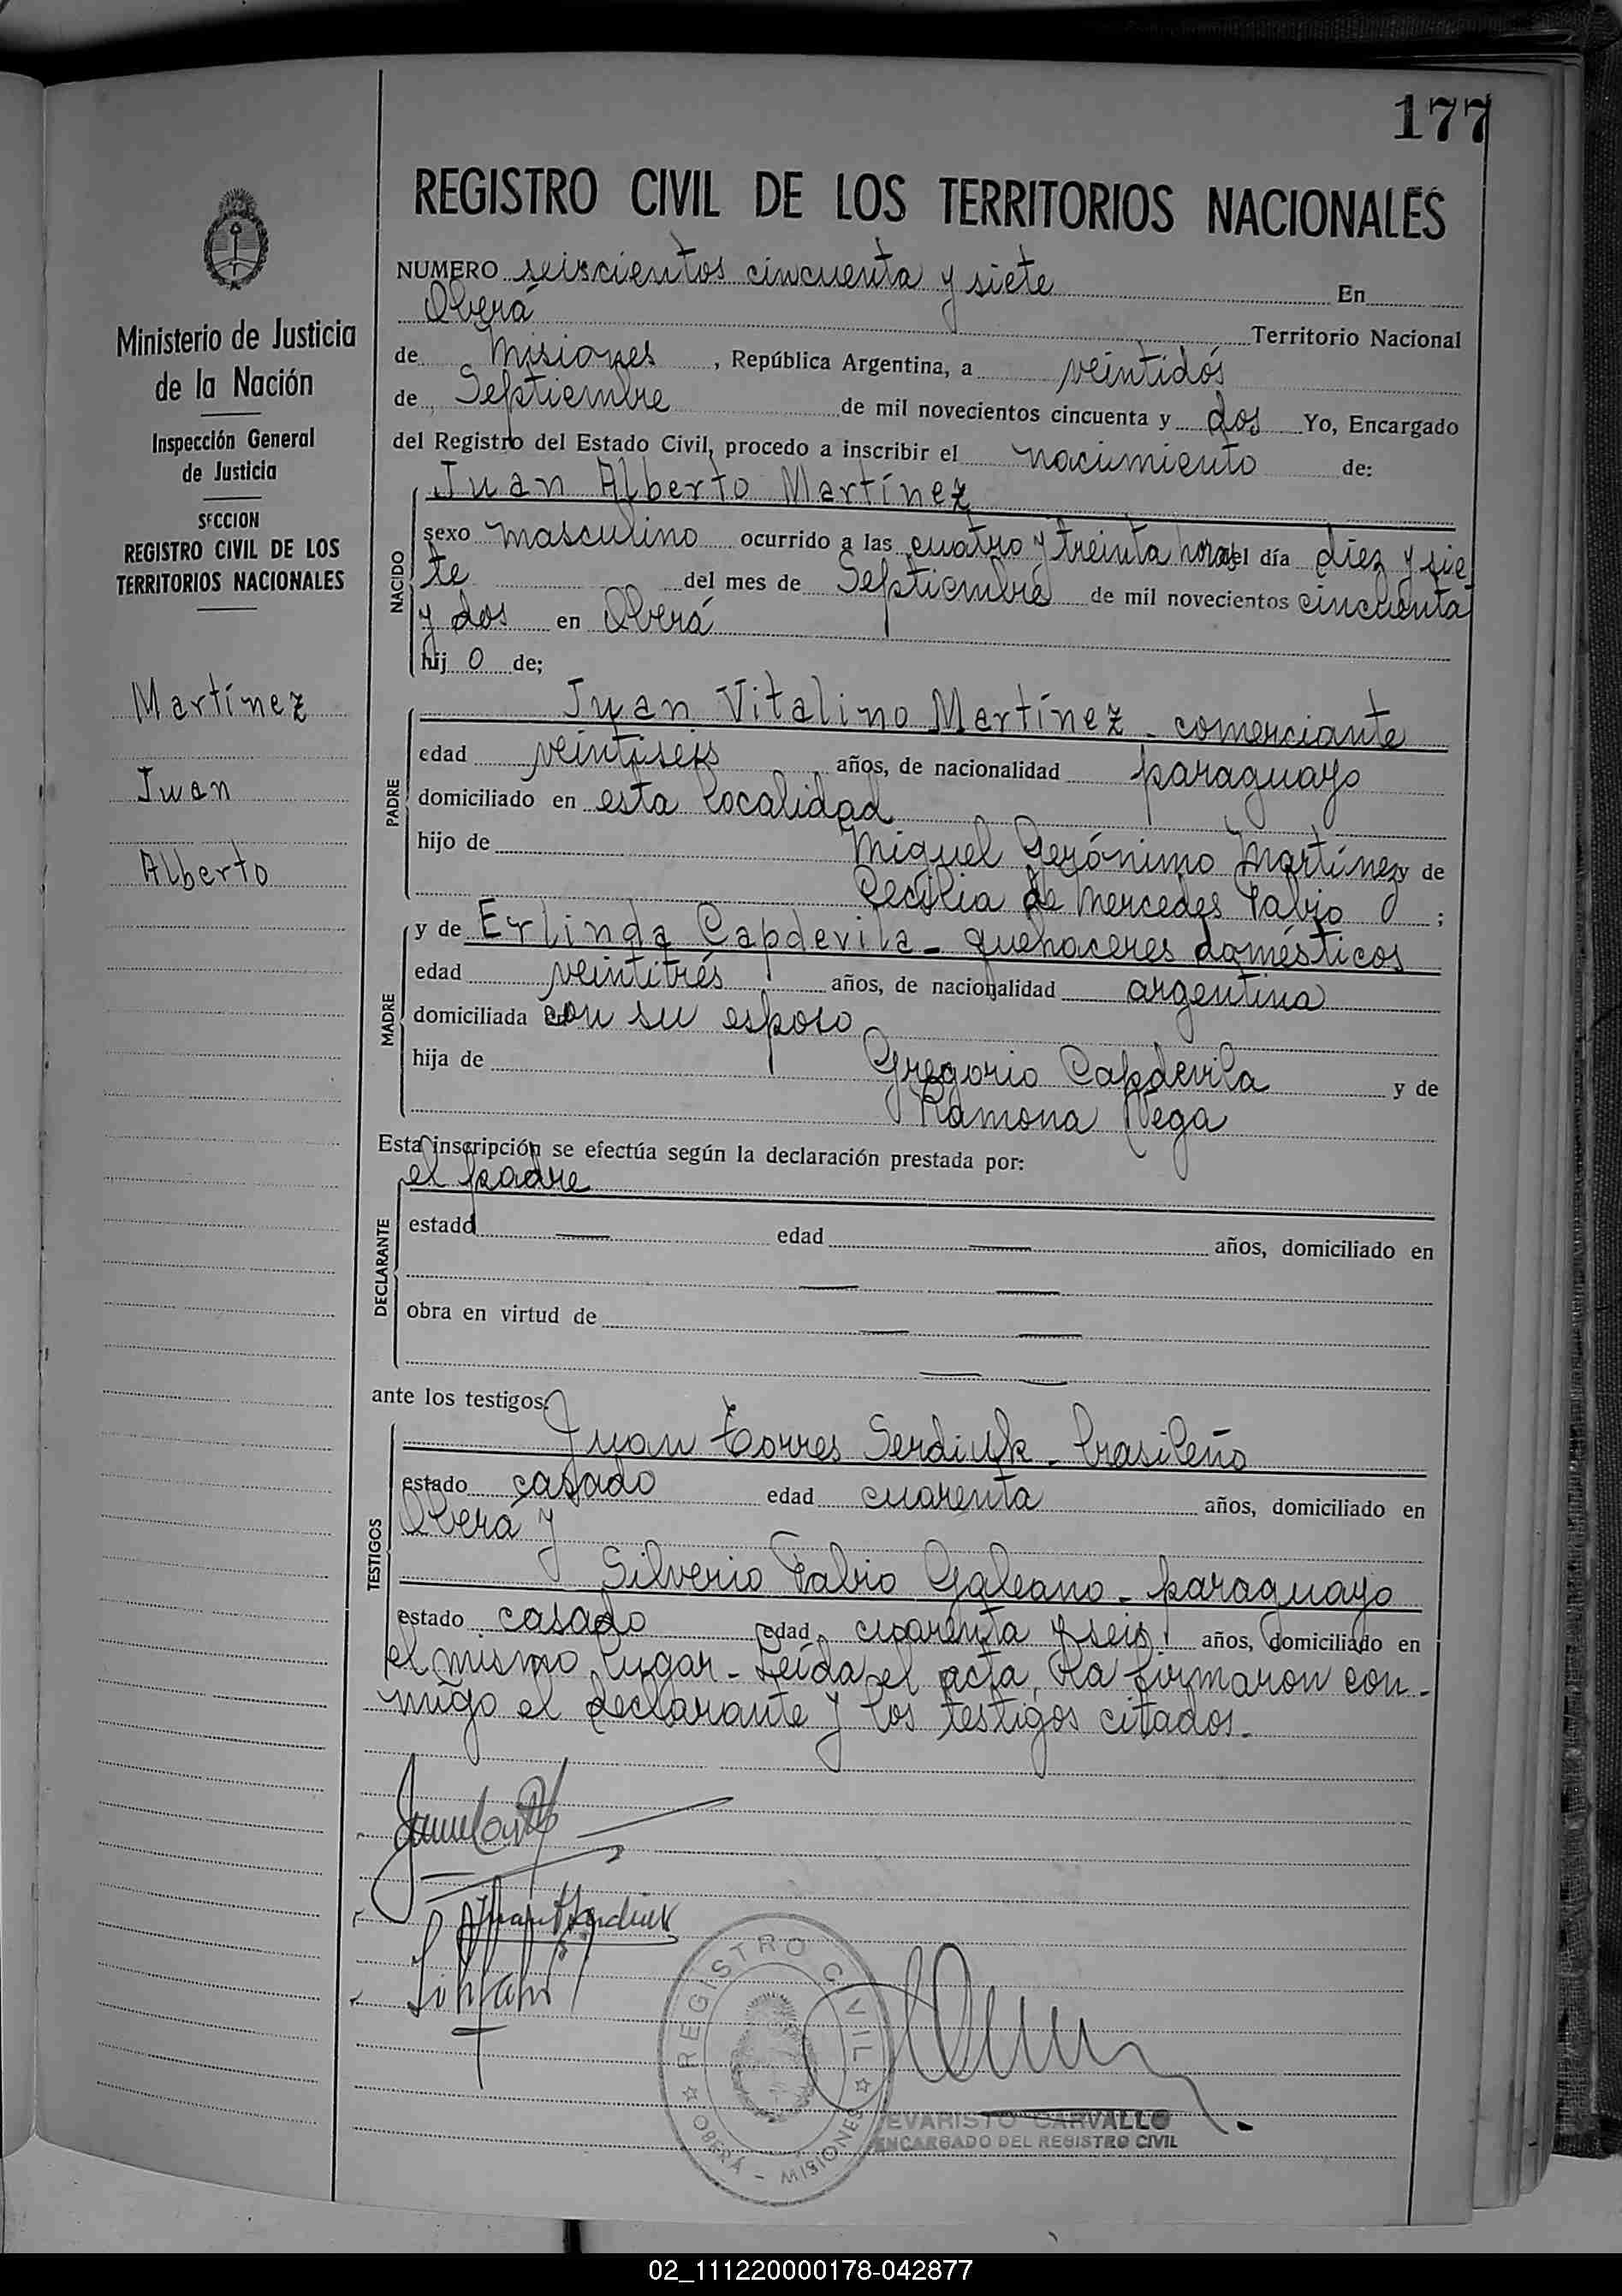 177
REGISTRO CIVIL DE LOS TERRITORIOS NACIONALES
Ministerio de Justicia
de la Nación
Inspección General
de Justicia
SECCION
REGISTRO CIVIL DE LOS
TERRITORIOS NACIONALES
Martínez
Juan
Alberto
NUMERO seiscientos cincuenta y siete En
Oberá Territorio Nacional
de Misiones, República Argentina, a veintidós
de Septiembre de mil novecientos cincuenta y dos Yo, Encargado
del Registro del Estado Civil, procedo a inscribir el nacimiento de:
NACIDO
Juan Alberto Martínez
sexo masculino ocurrido a las cuatro y treinta horas del día diez y sie
te del mes de Septiembre de mil novecientos cincuenta
y dos en Oberá
hij o de;
PADRE
Juan Vitalino Martínez - comerciante
edad veintiseis años, de nacionalidad paraguayo
domiciliado en esta localidad
hijo de Miguel Gerónimo Martínez y de
Cecilia de Mercedes Fabio ;
MADRE
y de Erlinda Capdevila - quehaceres domésticos
edad veintitrés años, de nacionalidad argentina
domiciliada con su esposo
hija de Gregorio Capdevila y de
Ramona Vega
Esta inscripción se efectúa según la declaración prestada por:
DECLARANTE
el padre
estado — edad — años, domiciliado en
— —
obra en virtud de — —
— —
ante los testigos:
TESTIGOS
Juan Torres Serdiuk - brasileño
estado casado edad cuarenta años, domiciliado en
Oberá y
Silverio Fabio Galeano - paraguayo
estado casado edad cuarenta y seis años, domiciliado en
el mismo lugar - Leída el acta, la firmaron con-
migo el declarante y los testigos citados.
REGISTRO CIVIL
OBERÁ - MISIONES
EVARISTO CARVALLO
ENCARGADO DEL REGISTRO CIVIL
02_111220000178-042877